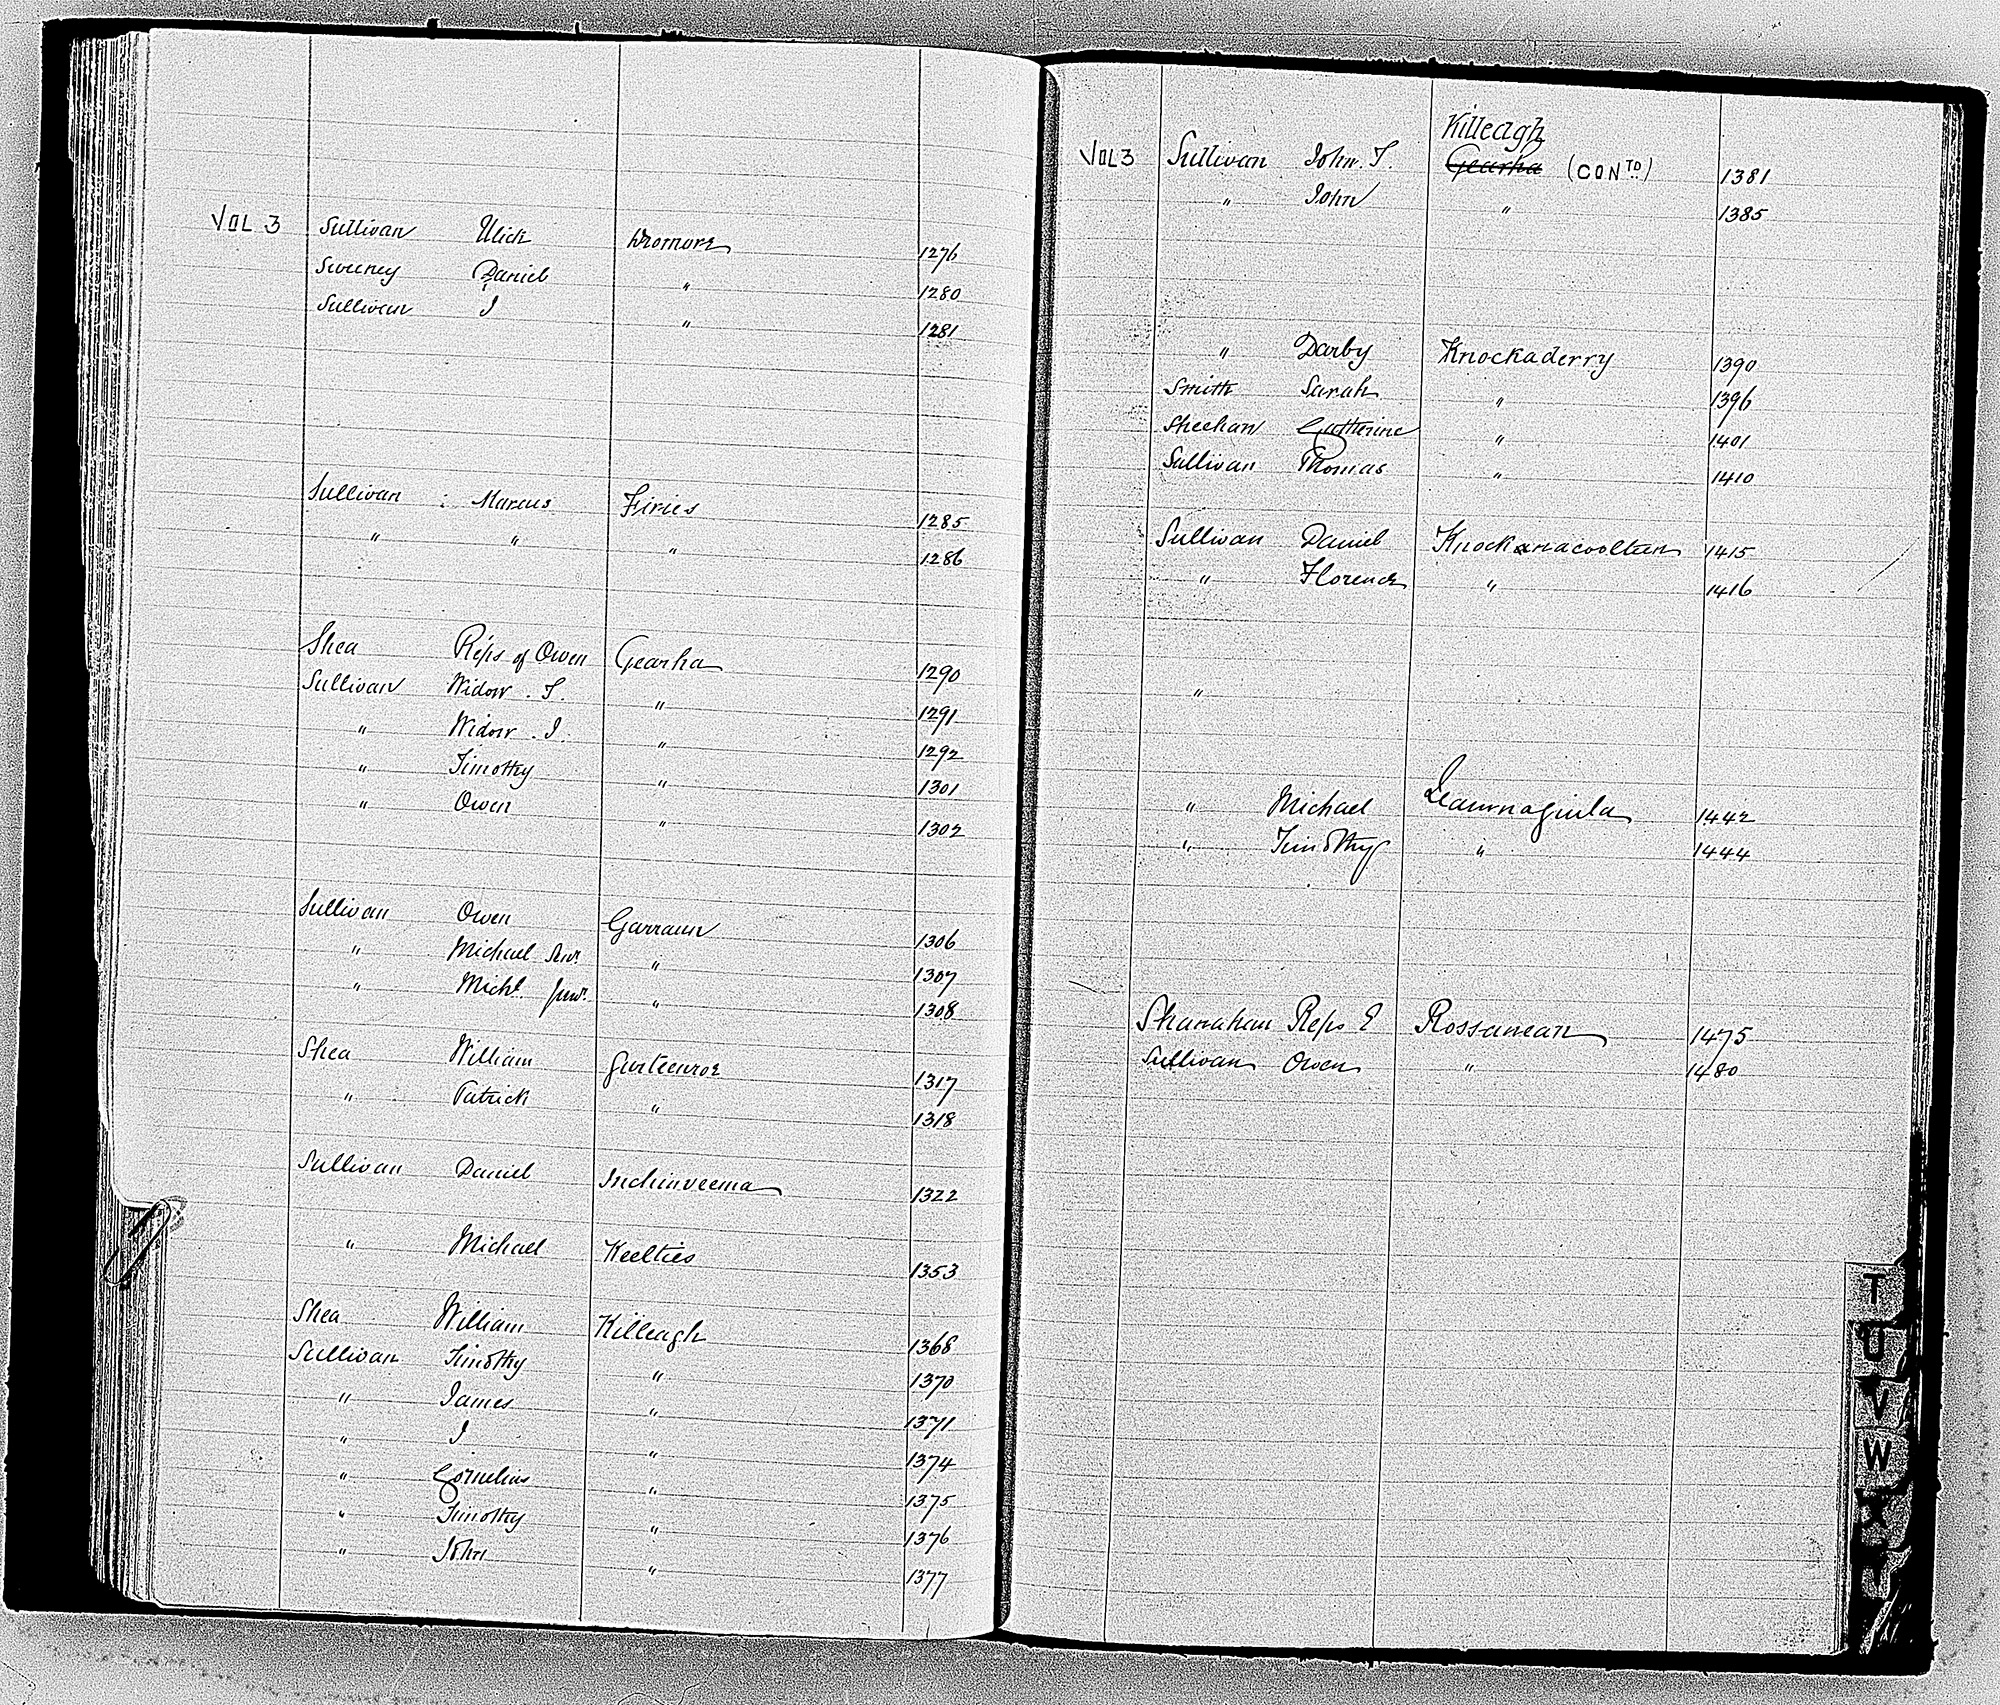 VOL 3 Sullivan Ulick Dromore 1276
Sweeney Daniel " 1280
Sullivan J " 1281
Sullivan : Marcus Firies 1285
" " " 1286
Shea Reps of Owen Gearha 1290
Sullivan Widow . T. " 1291
" Widow . J. " 1292
" Timothy " 1301
" Owen " 1302
Sullivan Owen Garraun 1306
" Michael Senr. " 1307
" Michl. Junr. " 1308
Shea William Gurteenroe 1317
" Patrick " 1318
Sullivan Daniel Inchinveema 1322
" Michael Keelties 1353
Shea William Killeagh 1368
Sullivan Timothy " 1370
" James " 1371
" J " 1374
" Cornelius " 1375
" Timothy " 1376
" John " 1377
Killeagh
VOL 3 Sullivan John. T. Gearha (CONTD) 1381
" John " 1385
" Darby Knockaderry 1390
Smith Sarah " 1396
Sheehan Catherine " 1401
Sullivan Thomas " 1410
Sullivan Daniel Knockanacoolteen 1415
" Florence " 1416
"
" Michael Leamnaguila 1442
" Timothy " 1444
Shanahan Reps E Rossanean 1475
Sullivan Owen " 1480
T
U
V
W